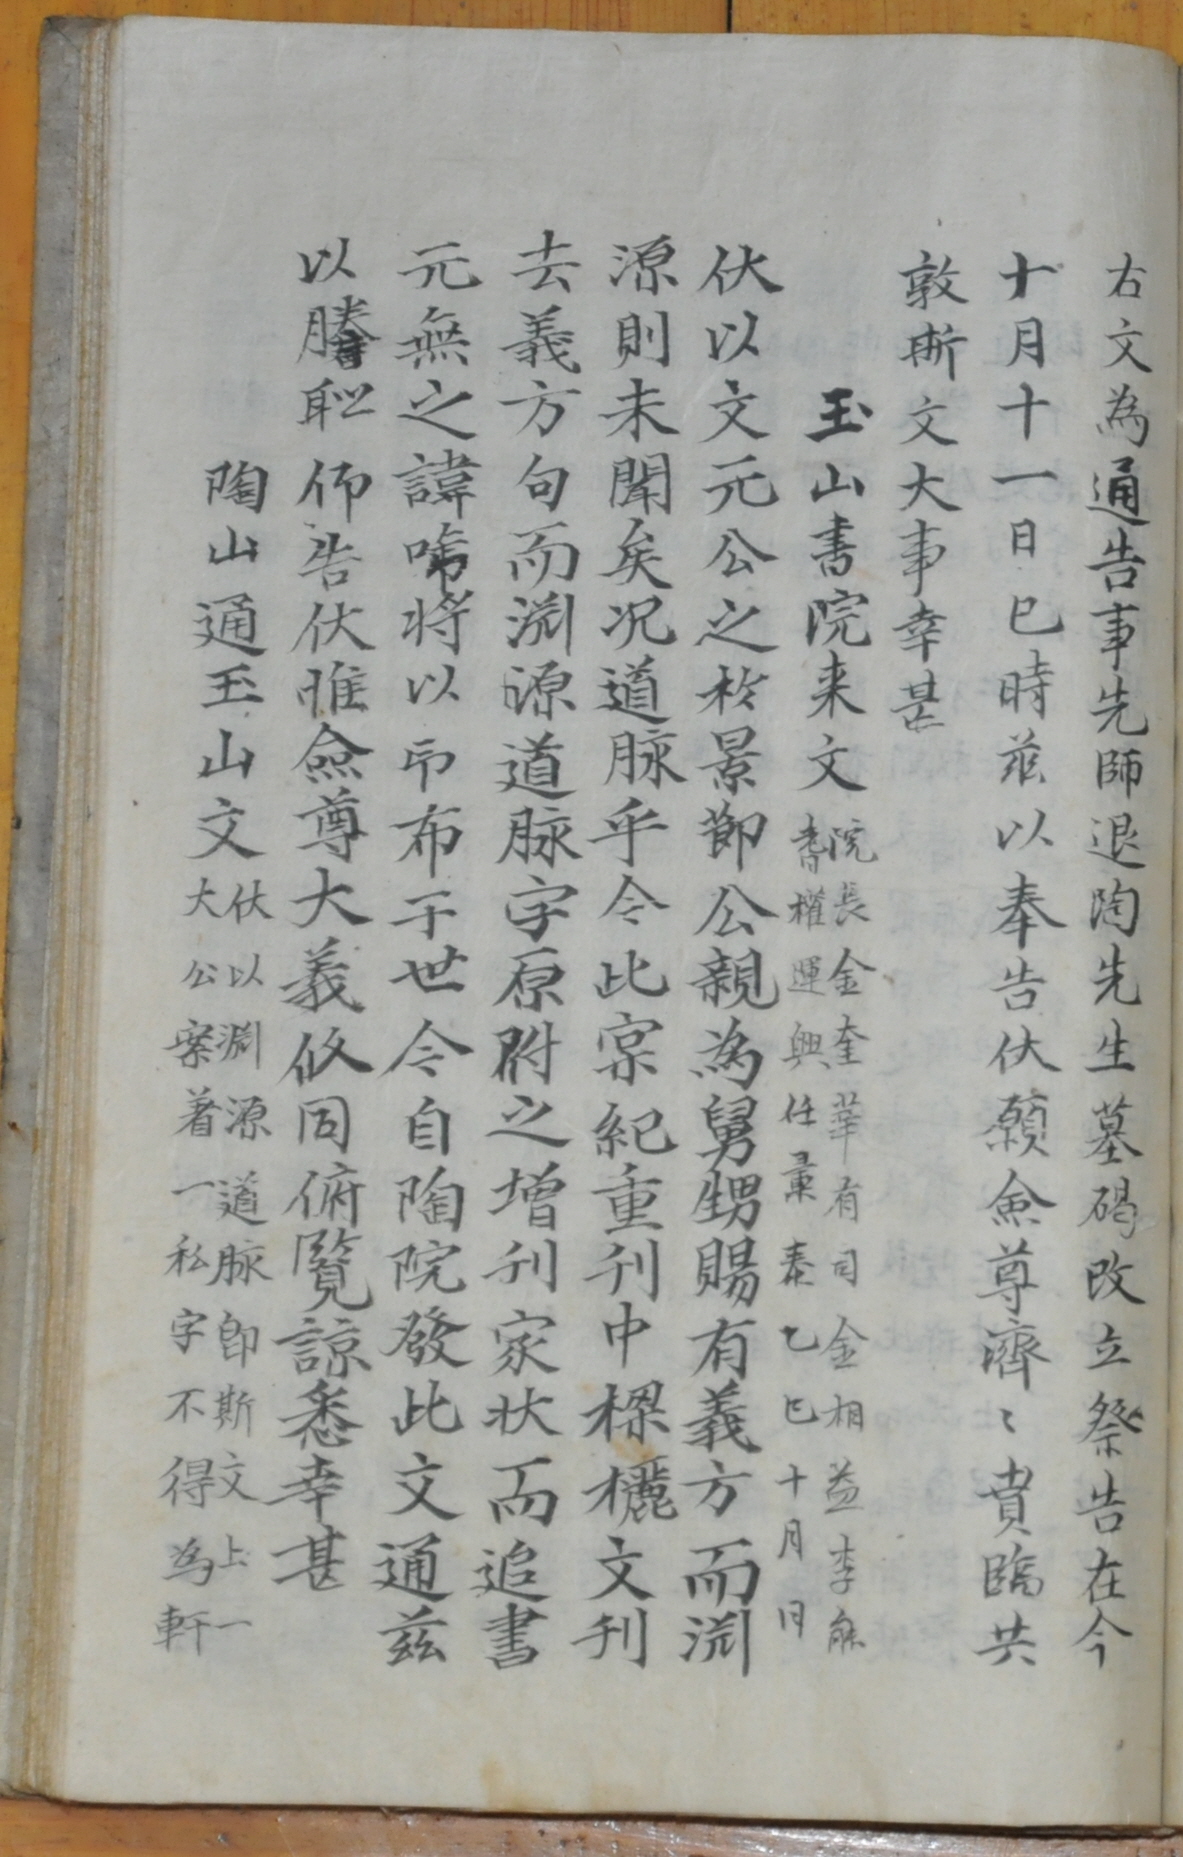 右文為通告事先師退陶先生墓碣改立祭告在今
十月十一日巳時玆以奉告伏願僉尊濟〻賁臨共
敦斯文大事幸甚
玉山書院来文
院長金奎華有司金相益李能
耆權運興任稟泰乙巳十月日
伏以文元公之於景節公親為舅甥賜有義方而淵
源則未聞矣况道脉乎今此宲紀重刊中樑欐文刊
去義方句而淵源道脉字原附之增刊家状而追書
元無之諱啼将以印布于世今自陶院發此文通兹
以謄聡仰告伏惟僉尊大義攸同俯覧諒悉幸甚
陶山通玉山文
伏以淵源道脉即斯文上一
大公案着一私字不得為軒